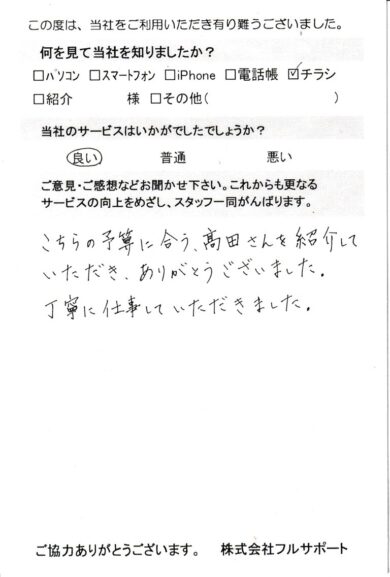 この度は、当社をご利用いただき有り難うございました。
何を見て当社を知りましたか？
□パソコン □スマートフォン □iPhone □電話帳 ☑チラシ
□紹介　　　様 □その他(　　　　　　　　)
当社のサービスはいかがでしたでしょうか？
良い　普通　悪い
ご意見・ご感想などお聞かせ下さい。これからも更なる
サービスの向上をめざし、スタッフ一同がんばります。
こちらの予算に合う、髙田さんを紹介して
いただき、ありがとうございました。
丁寧に仕事していただきました。
ご協力ありがとうございます。　株式会社フルサポート